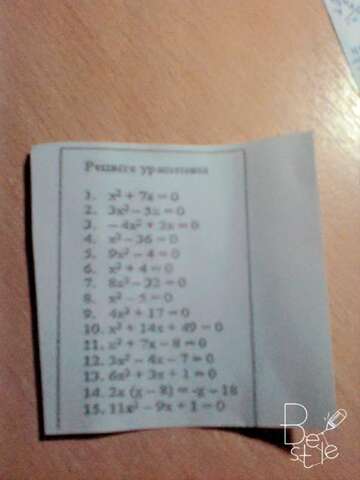 Решите уравнения
1. x² + 7x = 0
2. 3x² - 5x = 0
3. -4x² + 2x = 0
4. x² - 36 = 0
5. 9x² - 4 = 0
6. x² + 4 = 0
7. 8x² - 32 = 0
8. x² - 5 = 0
9. 4x² + 17 = 0
10. x² + 14x + 49 = 0
11. x² + 7x - 8 = 0
12. 3x² - 4x - 7 = 0
13. 6x² + 3x + 1 = 0
14. 2x (x - 8) = -x - 18
15. 11x² - 9x + 1 = 0
Be
style